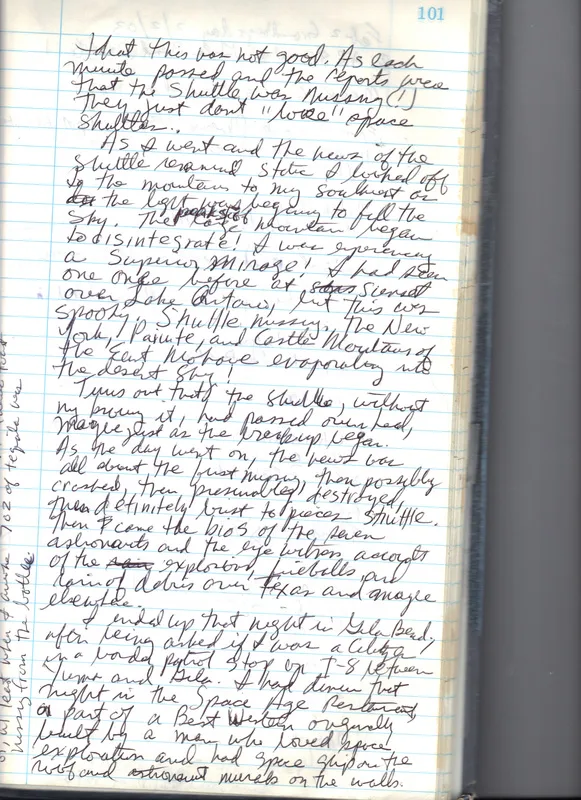 101
that this was not good. As each
minute passed and the reports were
that the Shuttle was missing (!)
They just don't "lose" space
Shuttles..
As I went and the news of the
Shuttle remained static I looked off
to the mountains to my southwest as
the light was beginning to fill the
sky. The peaks of mountain began
to disintegrate! I was experiencing
a Superior Mirage! I had seen
one once before at sunset
over Lake Ontario, but this was
spooky. Shuttle missing, the New
York, Paiute, and Castle Mountains of
the East Mohave evaporating into
the desert sky!
Turns out that the shuttle, without
my knowing it, had passed overhead,
maybe just as the breakup began.
As the day went on, the news was
all about the first missing, then possibly
crashed, then presumably destroyed,
then definitely burst to pieces shuttle.
Then came the bios of the seven
astronauts and the eye witness accounts
of the explosion, fireballs and
rain of debris over Texas and maybe
elsewhere.
I ended up that night in Gila Bend,
after being asked if I was a citizen
in a border patrol stop on I-8 between
Yuma and Gila. I had dinner that
night in the Space Age Restaurant,
a part of a Best Western originally
built by a man who loved space
exploration and had space ship on the
roof and astronaut murals on the walls.
702 of tequila was
missing from the bottle.